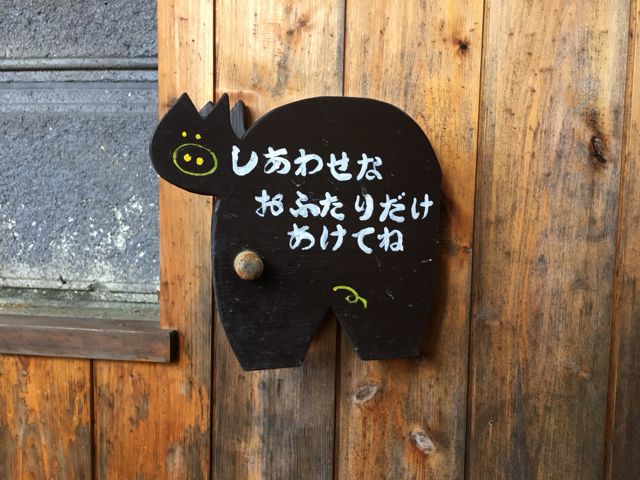 しあわせな
おふたりだけ
あけてね